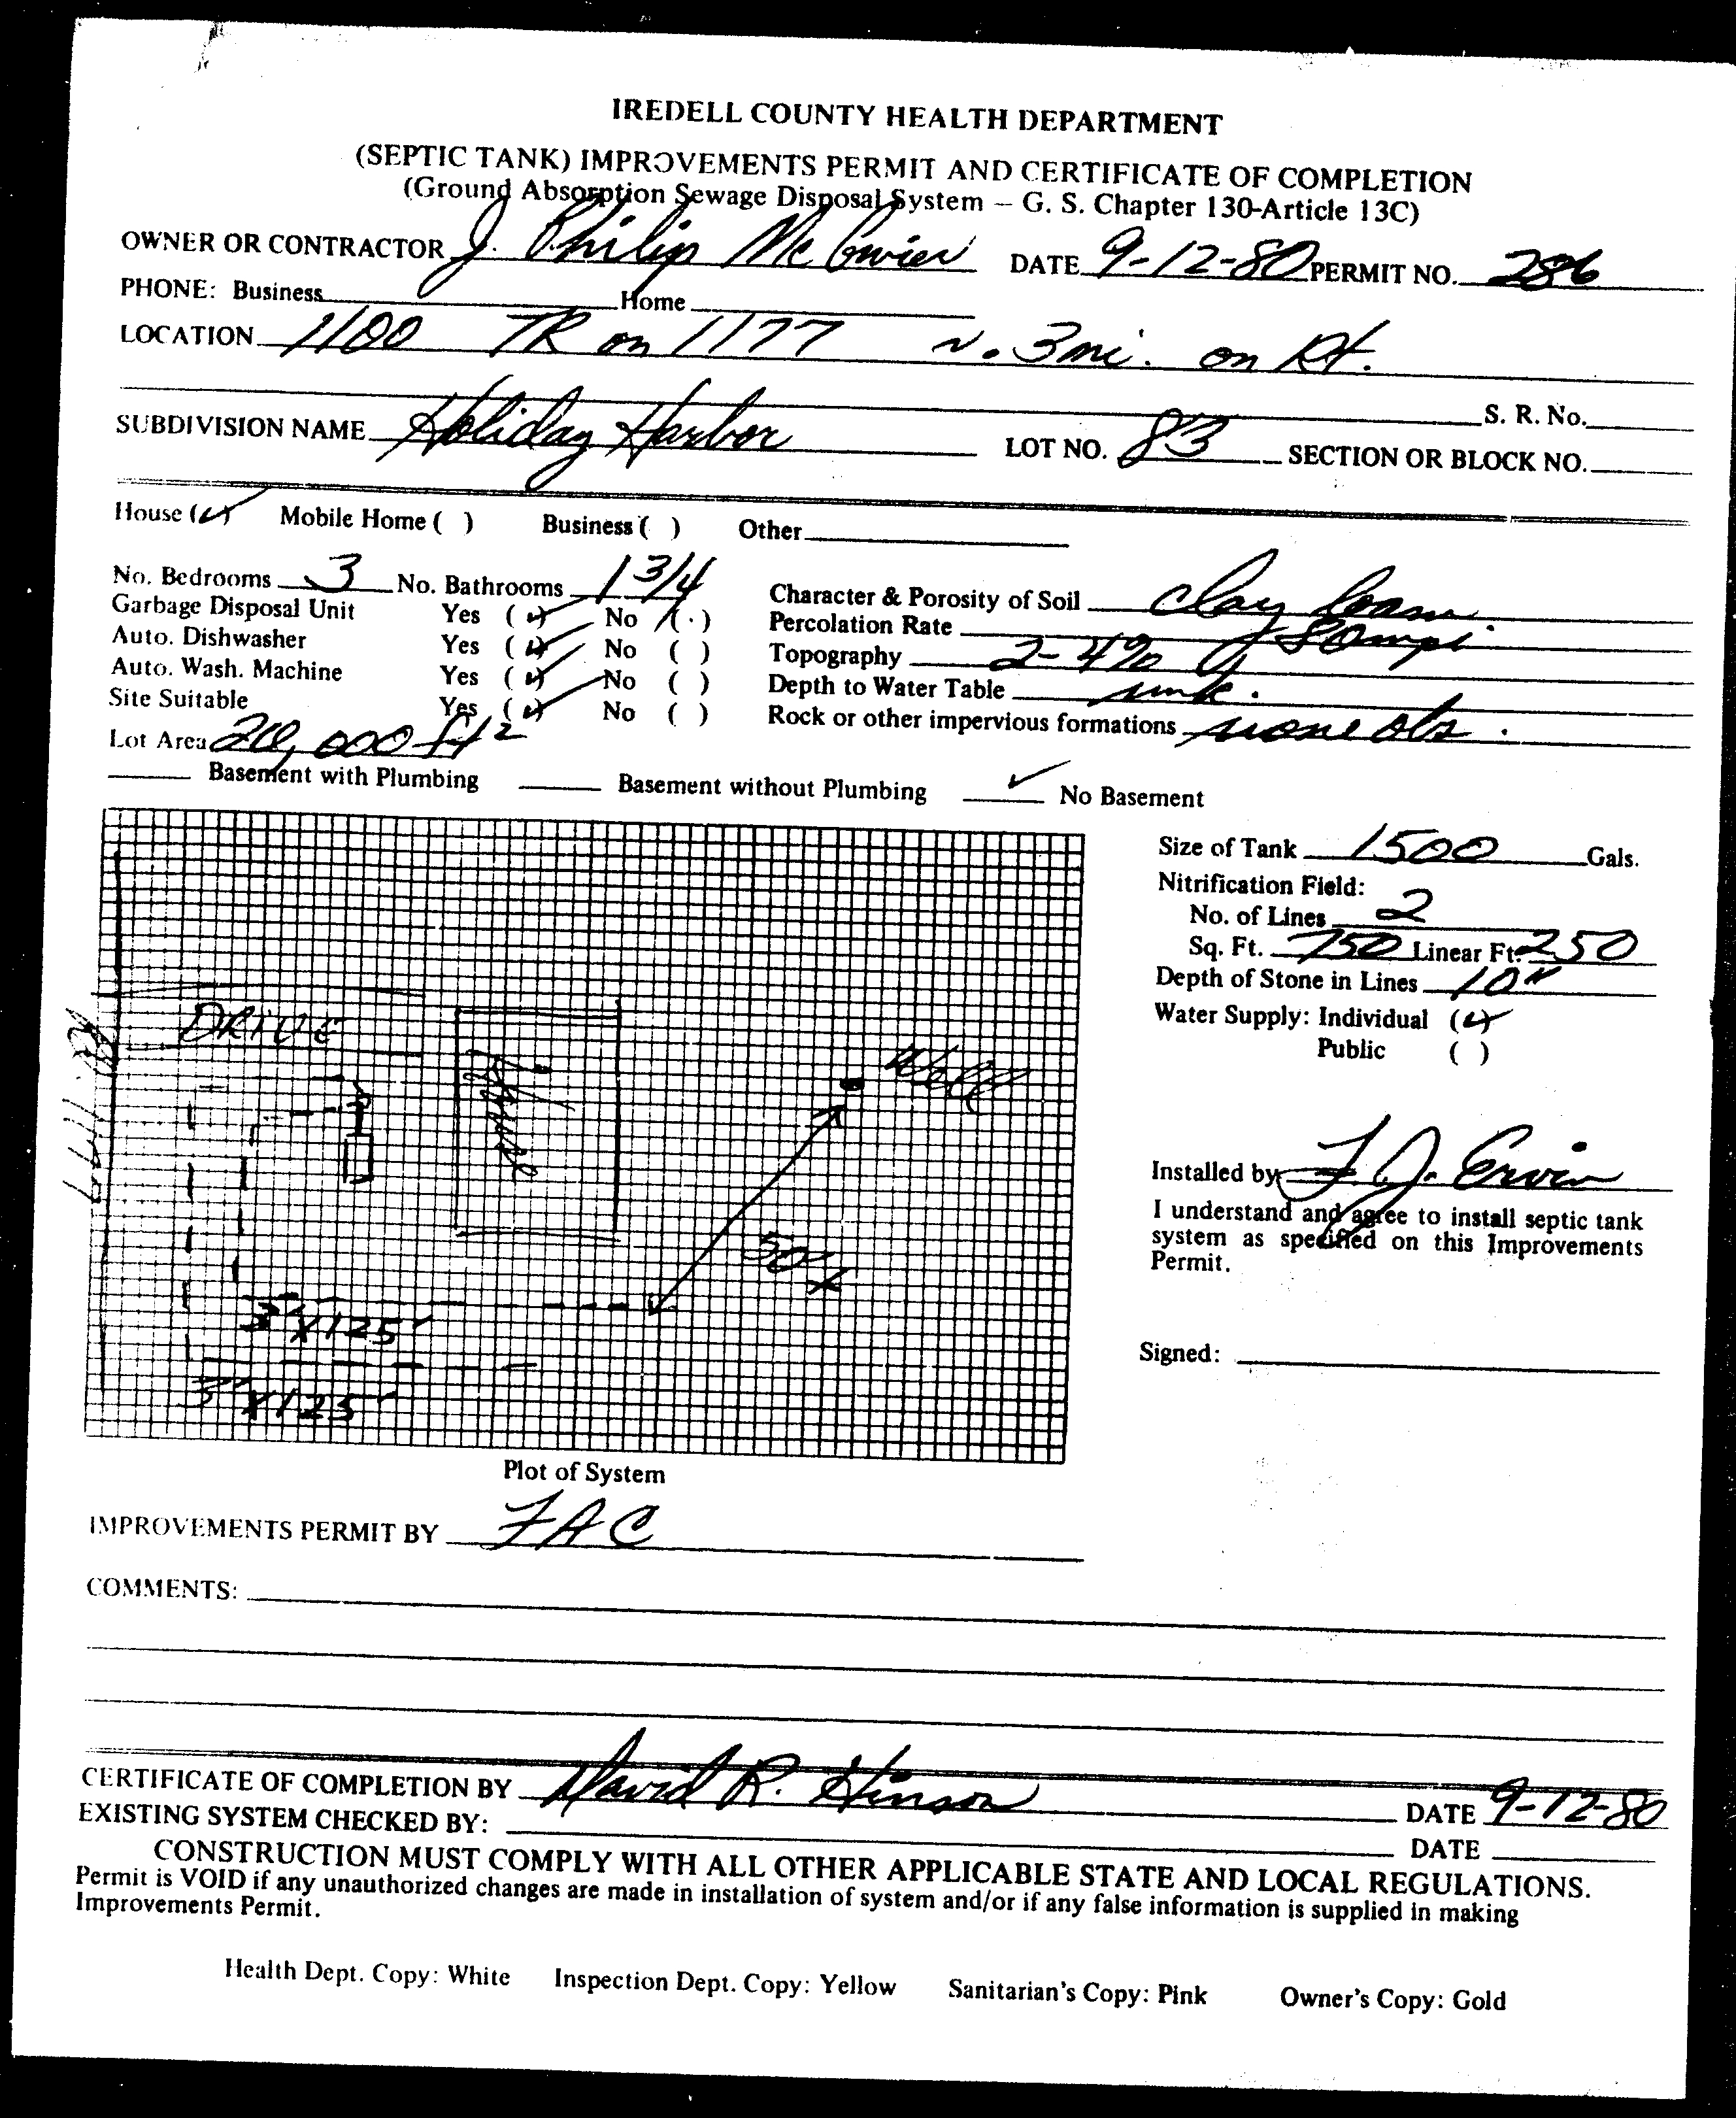 IREDELL COUNTY HEALTH DEPARTMENT
(SEPTIC TANK) IMPROVEMENTS PERMIT AND CERTIFICATE OF COMPLETION
(Ground Absorption Sewage Disposal System – G. S. Chapter 130-Article 13C)
OWNER OR CONTRACTOR J. Philip DATE 9-12-80 PERMIT NO. 286
PHONE: Business Home
LOCATION 1100 TR on 1177 3 mi. on Rt.
S. R. No.
SUBDIVISION NAME Holiday Harbor LOT NO. 83 SECTION OR BLOCK NO.
House (✓) Mobile Home ( ) Business ( ) Other
No. Bedrooms 3 No. Bathrooms 1 3/4 Character & Porosity of Soil clay loam
Garbage Disposal Unit Yes (✓) No ( ) Percolation Rate
Auto. Dishwasher Yes (✓) No ( ) Topography 2-4%
Auto. Wash. Machine Yes (✓) No ( ) Depth to Water Table unk.
Site Suitable Yes (✓) No ( ) Rock or other impervious formations none obs.
Lot Area 20,000 ft2
Basement with Plumbing Basement without Plumbing ✓ No Basement
Size of Tank 1500 Gals.
Nitrification Field:
No. of Lines 2
Sq. Ft. 750 Linear Ft. 250
Depth of Stone in Lines 10"
Water Supply: Individual (✓)
Public ( )
DRIVE
House
Well
50'
3' X 125'
3' X 125'
Installed by F. J. Ervin
I understand and agree to install septic tank
system as specified on this Improvements
Permit.
Signed:
Plot of System
IMPROVEMENTS PERMIT BY FAC
COMMENTS:
CERTIFICATE OF COMPLETION BY David R. Hinson DATE 9-12-80
EXISTING SYSTEM CHECKED BY: DATE
CONSTRUCTION MUST COMPLY WITH ALL OTHER APPLICABLE STATE AND LOCAL REGULATIONS.
Permit is VOID if any unauthorized changes are made in installation of system and/or if any false information is supplied in making
Improvements Permit.
Health Dept. Copy: White Inspection Dept. Copy: Yellow Sanitarian's Copy: Pink Owner's Copy: Gold